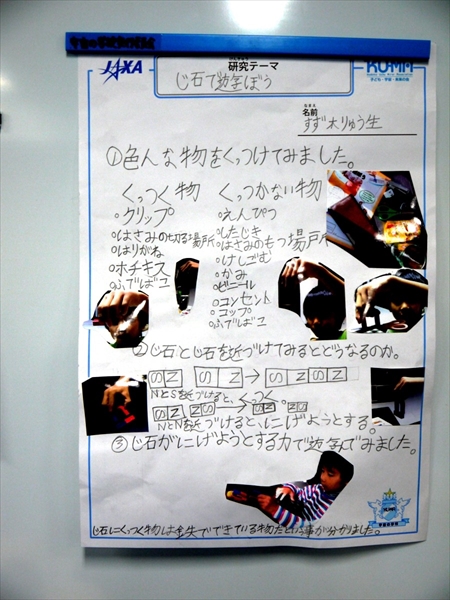 JAXA
研究テーマ
じ石で遊ぼう
KU-MA
子ども・宇宙・未来の会
なまえ
名前
すず木りゅう生
①色んな物をくっつけてみました。
くっつく物
○クリップ
○はさみの切る場所
○はりがね
○ホチキス
○ふでばコ
くっつかない物
○えんぴつ
○したじき
○はさみのもつ場所
○けしごむ
○かみ
○ビニール
○コンセント
○コップ
○ふでばコ
②じ石とじ石を近づけてみるとどうなるのか。
S N S N → S N S N
NとSを近づけると、くっつく。
S N N S → S N N S
NとNを近づけると、にげようとする。
③じ石がにげようとする力で遊んでみました。
じ石にくっつく物は金失でできている物だという事が分かりました。